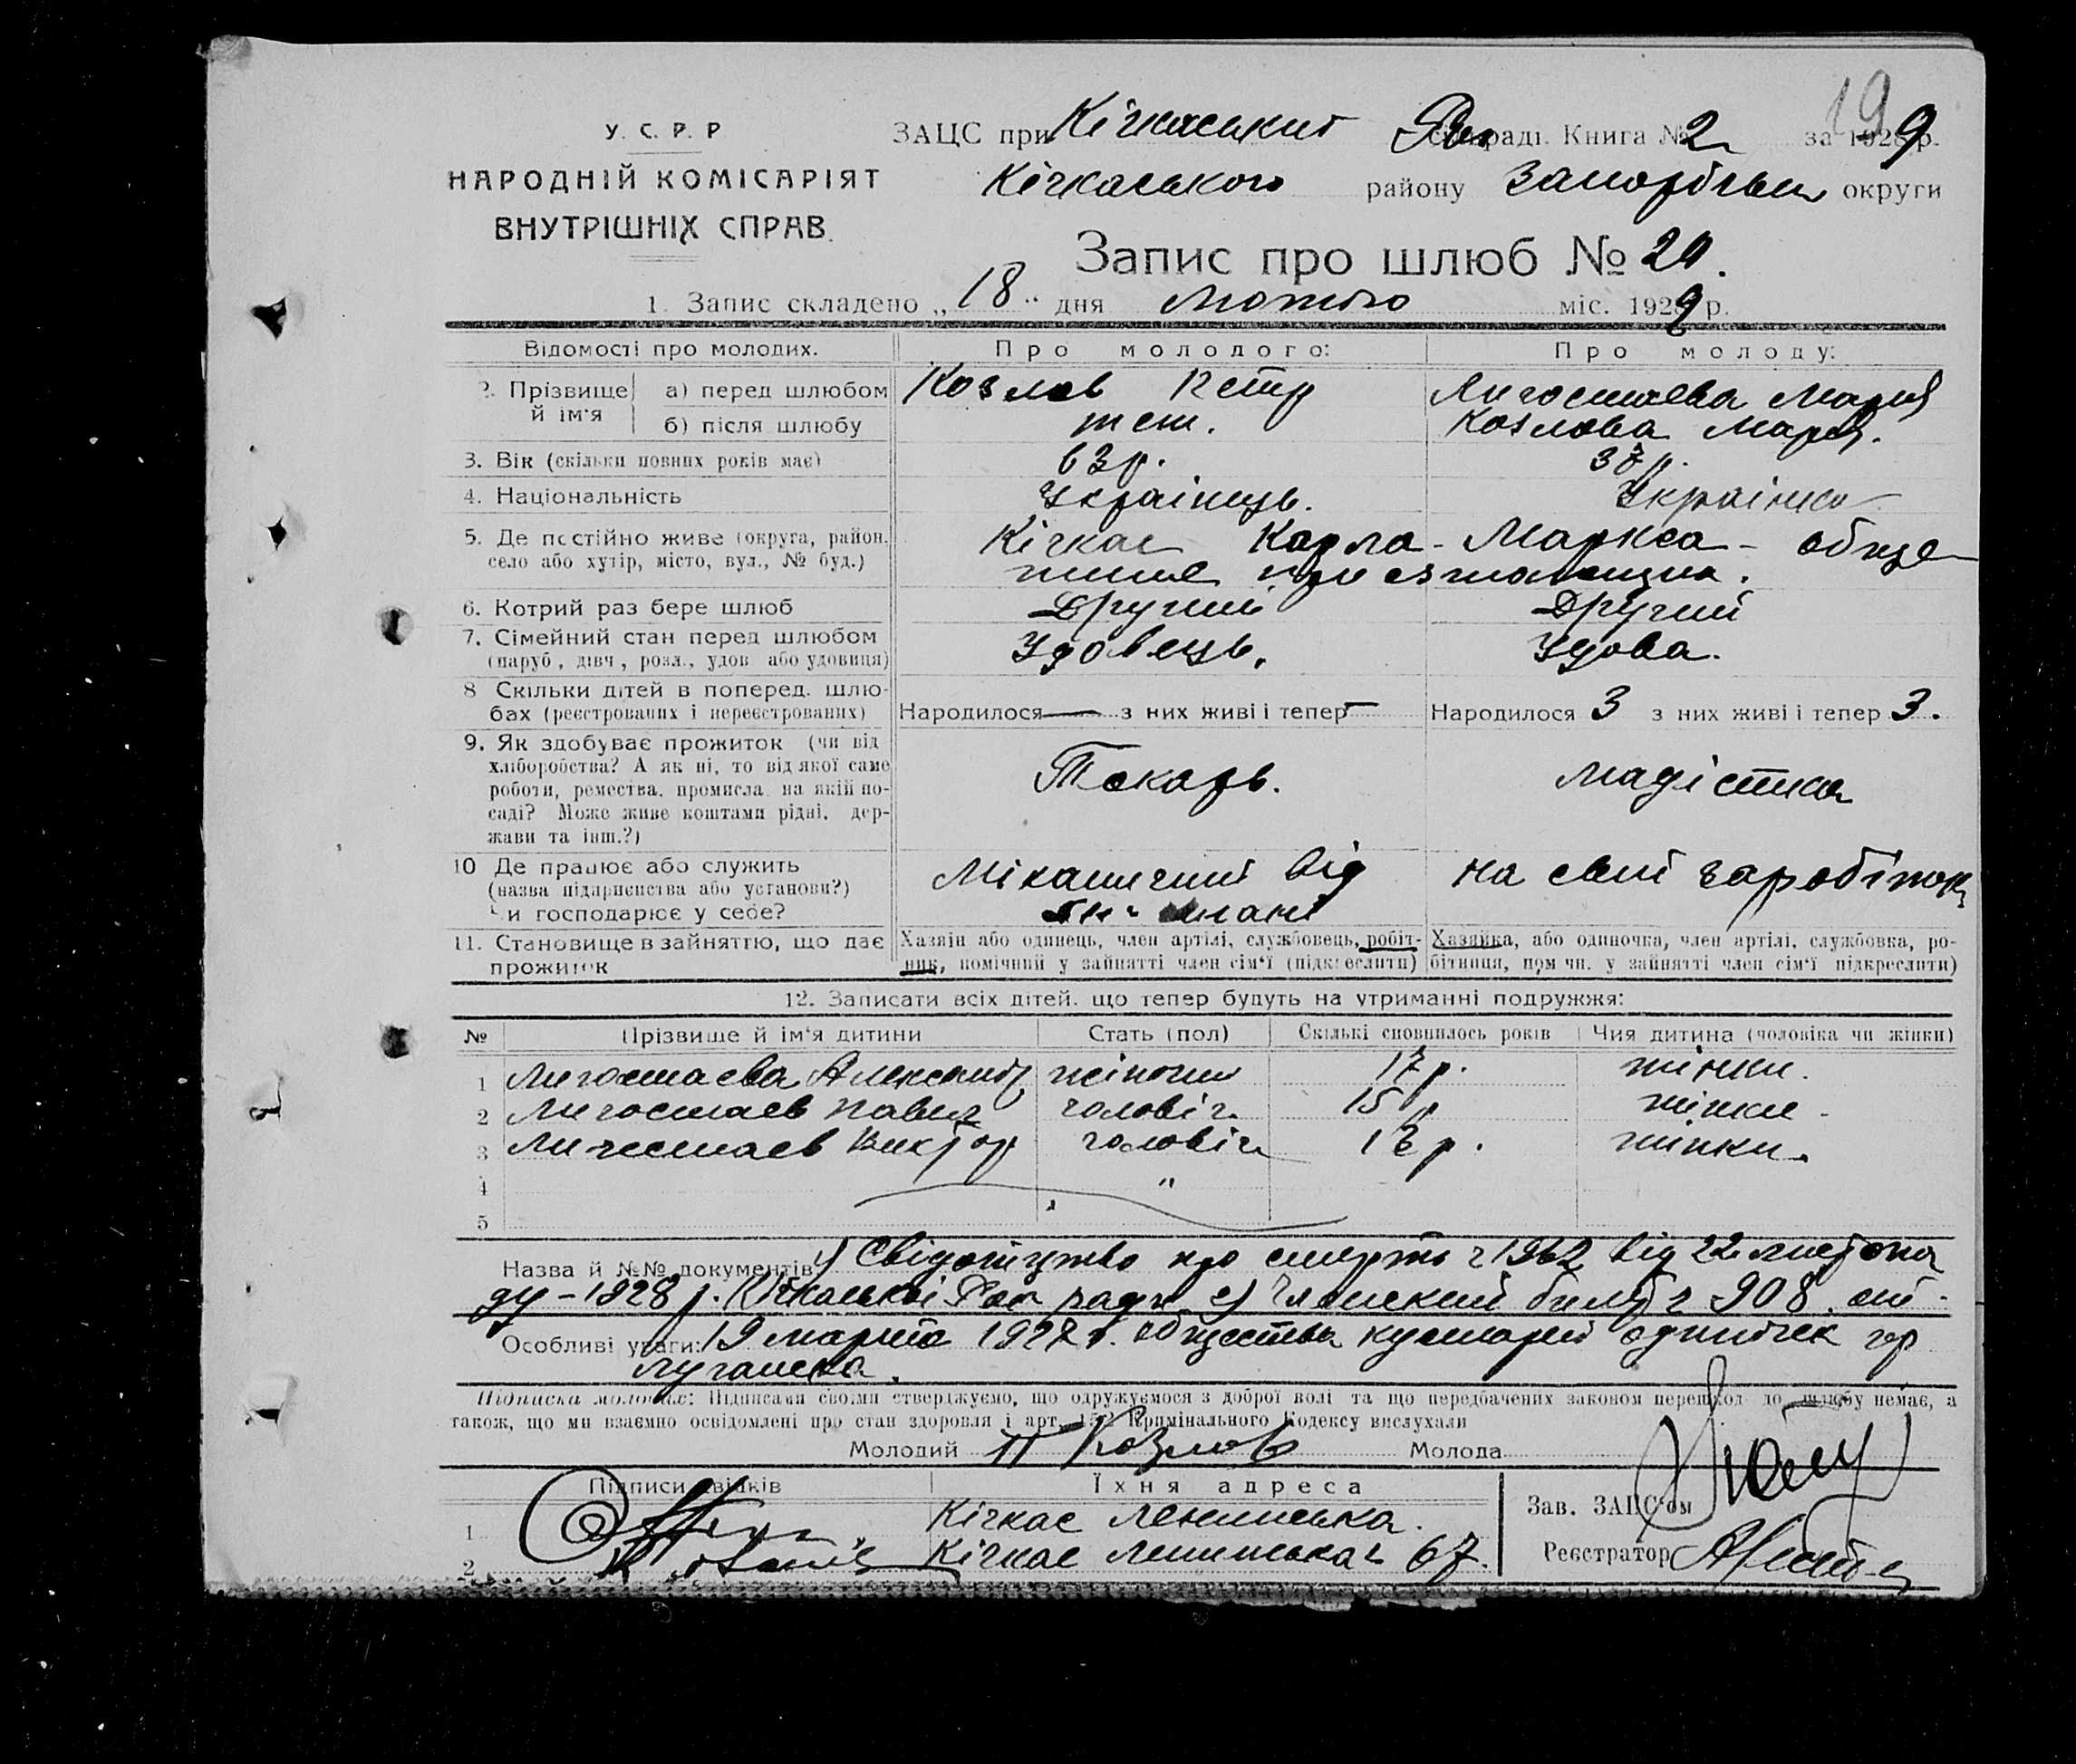 19
У. С. Р. Р
НАРОДНІЙ КОМІСАРІЯТ
ВНУТРІШНІХ СПРАВ.
ЗАЦС при Кічкаський сільраді. Книга № 2 за 1929 р.
Кічкаського району округи
Запис про шлюб № 20.
1. Запис складено „ 18 " дня лютого міс. 1929 р.
Відомості про молодих. Про молодого: Про молоду:
2. Прізвище й ім'я а) перед шлюбом Козлов Петр Лигостаева Мария
б) після шлюбу теж. Козлова Мария.
3. Вік (скільки повних років має) 63 р. 37 р.
4. Національність Українець. Українка
5. Де постійно живе (округа, район, Кічкас Карла - Маркса - обще
село або хутір, місто, вул., № буд.)
6. Котрий раз бере шлюб Другий Другий
7. Сімейний стан перед шлюбом Удовець. Удова.
(паруб, дівч, розл., удов або удовиця)
8 Скільки дітей в поперед. шлю-
бах (реєстрованих і нереєстрованих) Народилося — з них живі і тепер — Народилося 3 з них живі і тепер 3.
9. Як здобуває прожиток (чи від
хліборобства? А як ні, то від якої саме
роботи, ремества, промисла, на якій по- Токарь. модістка
саді? Може живе коштами рідні, дер-
жави та інш.?)
10 Де працює або служить Міканичний від на свій заробіток
(назва підприємства або установи?)
Чи господарює у себе?
11. Становище в зайняттю, що дає Хазяїн або одинець, член артілі, службовець, робіт- Хазяйка, або одиночка, член артілі, службовка, ро-
прожиток ник, помічний у зайнятті член сім'ї (підкреслити) бітниця, пом чн. у зайнятті член сім'ї підкреслити)
12. Записати всіх дітей, що тепер будуть на утриманні подружжя:
№ Прізвище й ім'я дитини Стать (пол) Скількі сповнилось років Чия дитина (чоловіка чи жінки)
1 Лигостаева Александр жіноча 17 р. жінки.
2 Лигостаев Павел чоловіч. 15 р жінки.
3 Лигостаев Виктор чоловіч 12 р. жінки.
4 "
5
Назва й №№ документів 1) Свідоцтво про смерть ч 1962 від 22 листопа
ду - 1928 р. Кічкаської Рай ради 2) Членский билет ч 908. от
Особливі уваги: 19 марта 1927 г. общества кустарей одиночек гор
Луганска.
Підписка молодих: Підписами своїми стверджуємо, що одружуємося з доброї волі та що передбачених законом перешкод до шлюбу немає, а
також, що ми взаємно освідомлені про стан здоровля і арт. 152 Кримінального Кодексу вислухали
Молодий П Козлов Молода
Підписи свідків Їхня адреса
1 Кічкас Ленинська. Зав. ЗАЦС'ом
2 Кічкас Ленинська 67. Реєстратор